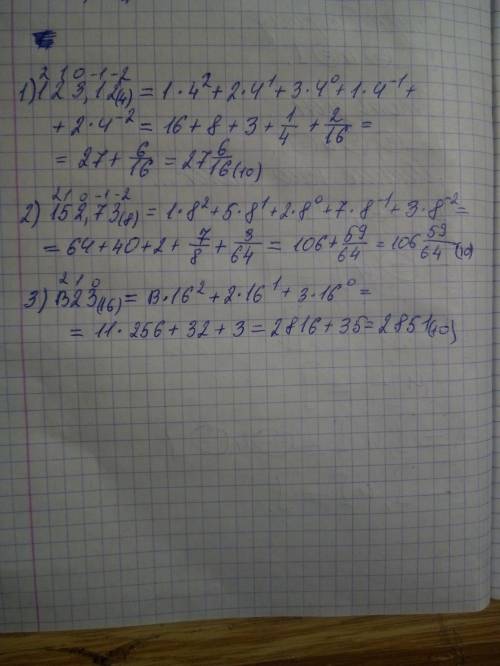 2 1 0 -1 -2
1) 123,12(4) = 1·4² + 2·4¹ + 3·4⁰ + 1·4⁻¹ +
+ 2·4⁻² = 16 + 8 + 3 + 1/4 + 2/16 =
= 27 + 6/16 = 27 6/16 (10)
2 1 0 -1 -2
2) 152,73(8) = 1·8² + 5·8¹ + 2·8⁰ + 7·8⁻¹ + 3·8⁻² =
= 64 + 40 + 2 + 7/8 + 3/64 = 106 + 59/64 = 106 59/64 (10)
2 1 0
3) B23(16) = B·16² + 2·16¹ + 3·16⁰ =
= 11·256 + 32 + 3 = 2816 + 35 = 2851(10)